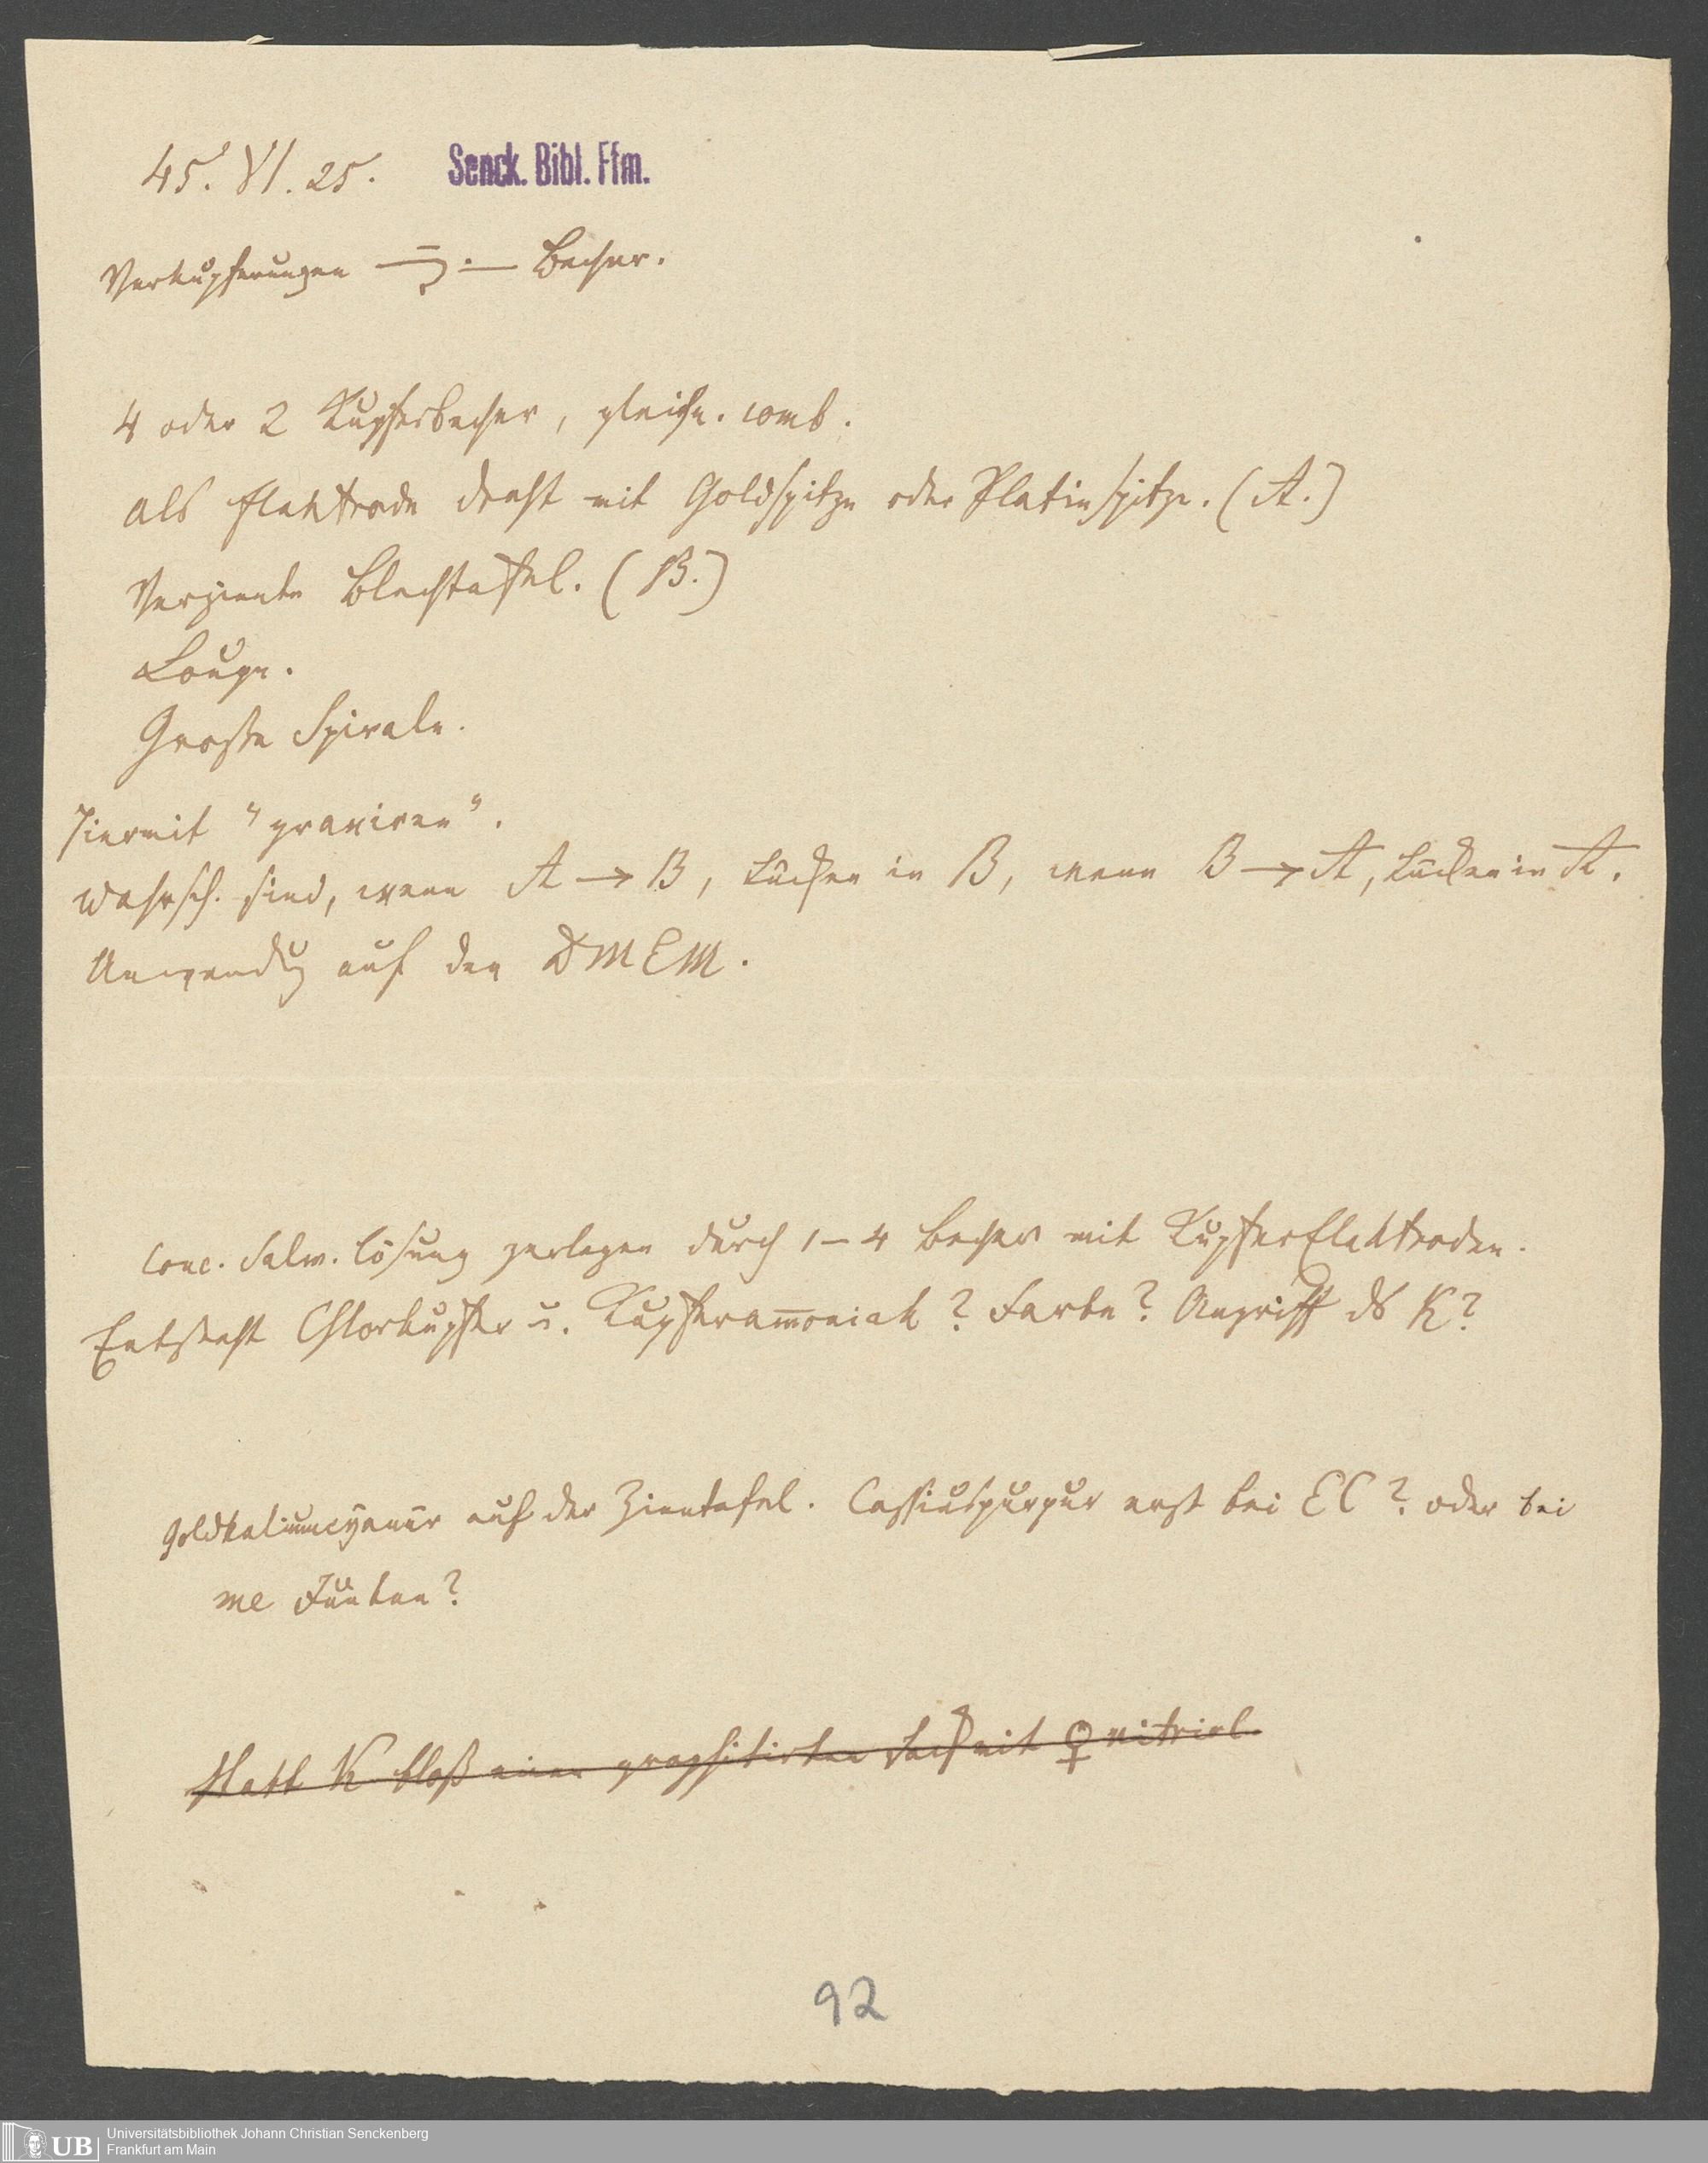 45. VI. 25.
Senck. Bibl. Ffm.
Verkupferungen — Becher.
4 oder 2 Kupferbecher, gleichn. comb.
als Elektrode Draht mit Goldspitze oder Platinspitze. (A.)
Verzinnte Blechtafel. (B.)
Loupe.
Große Spirale.
Hiermit "graviren".
Wahrsch. sind, wenn A → B, Lücken in B, wenn B → A, Lücken in A.
Anwendg auf den DMEM.
Conc. Salm. lösung zerlegen durch 1 – 4 Becher mit KupferElektroden.
Entsteht Chlorkupfer u. Kupferam̅oniak? Farbe? Angriff ds K?
Goldkaliumcyanür auf der Zinntafel. Cassiuspurpur erst bei EC? oder bei
me Funken?
Statt K bloß einen graphitirten mit ♀ vitriol.
92
UB
Universitätsbibliothek Johann Christian Senckenberg
Frankfurt am Main